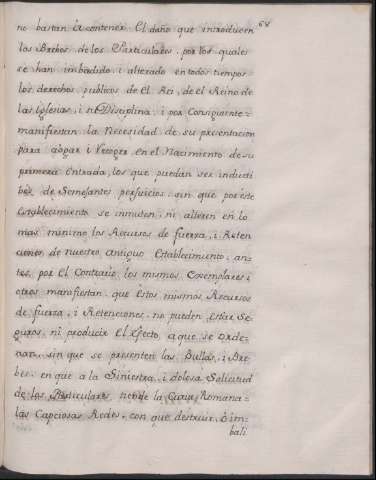 68
no bastan à contener. El daño que introducen
los Brebes de los Particulares, por los quales
se han imbadido, i alterado en todos tiempos
los derechos publicos de el Rei, de el Reino de
las Iglesias, i su Disciplina; i por Consiguiente
manifiestan la Necesidad de su presentacion
para aogar i recoger en el Nacimiento de su
primera entrada, los que puedan ser inducti
bos de Semejantes perjuicios: sin que por este
establecimiento se inmuten, ni alteren en lo
mas minimo los Recursos de fuerza, i Reten
ciones de nuestro antiguo Establecimiento: an-
tes por el Contrario, los mismos Exemplares i
otros manifiestan que estos mismos Recursos
de fuerza, i Retenciones no pueden estar Se
guros, ni producir el efecto, a que se orde-
nan, sin que se presenten las Bullas, i Bre
bes: en que a la Siniestra, i dolosa Solicitud
de los Particulares, tiende la Curia Romana
las Capciosas Redes, con que destruir, è im-
bali